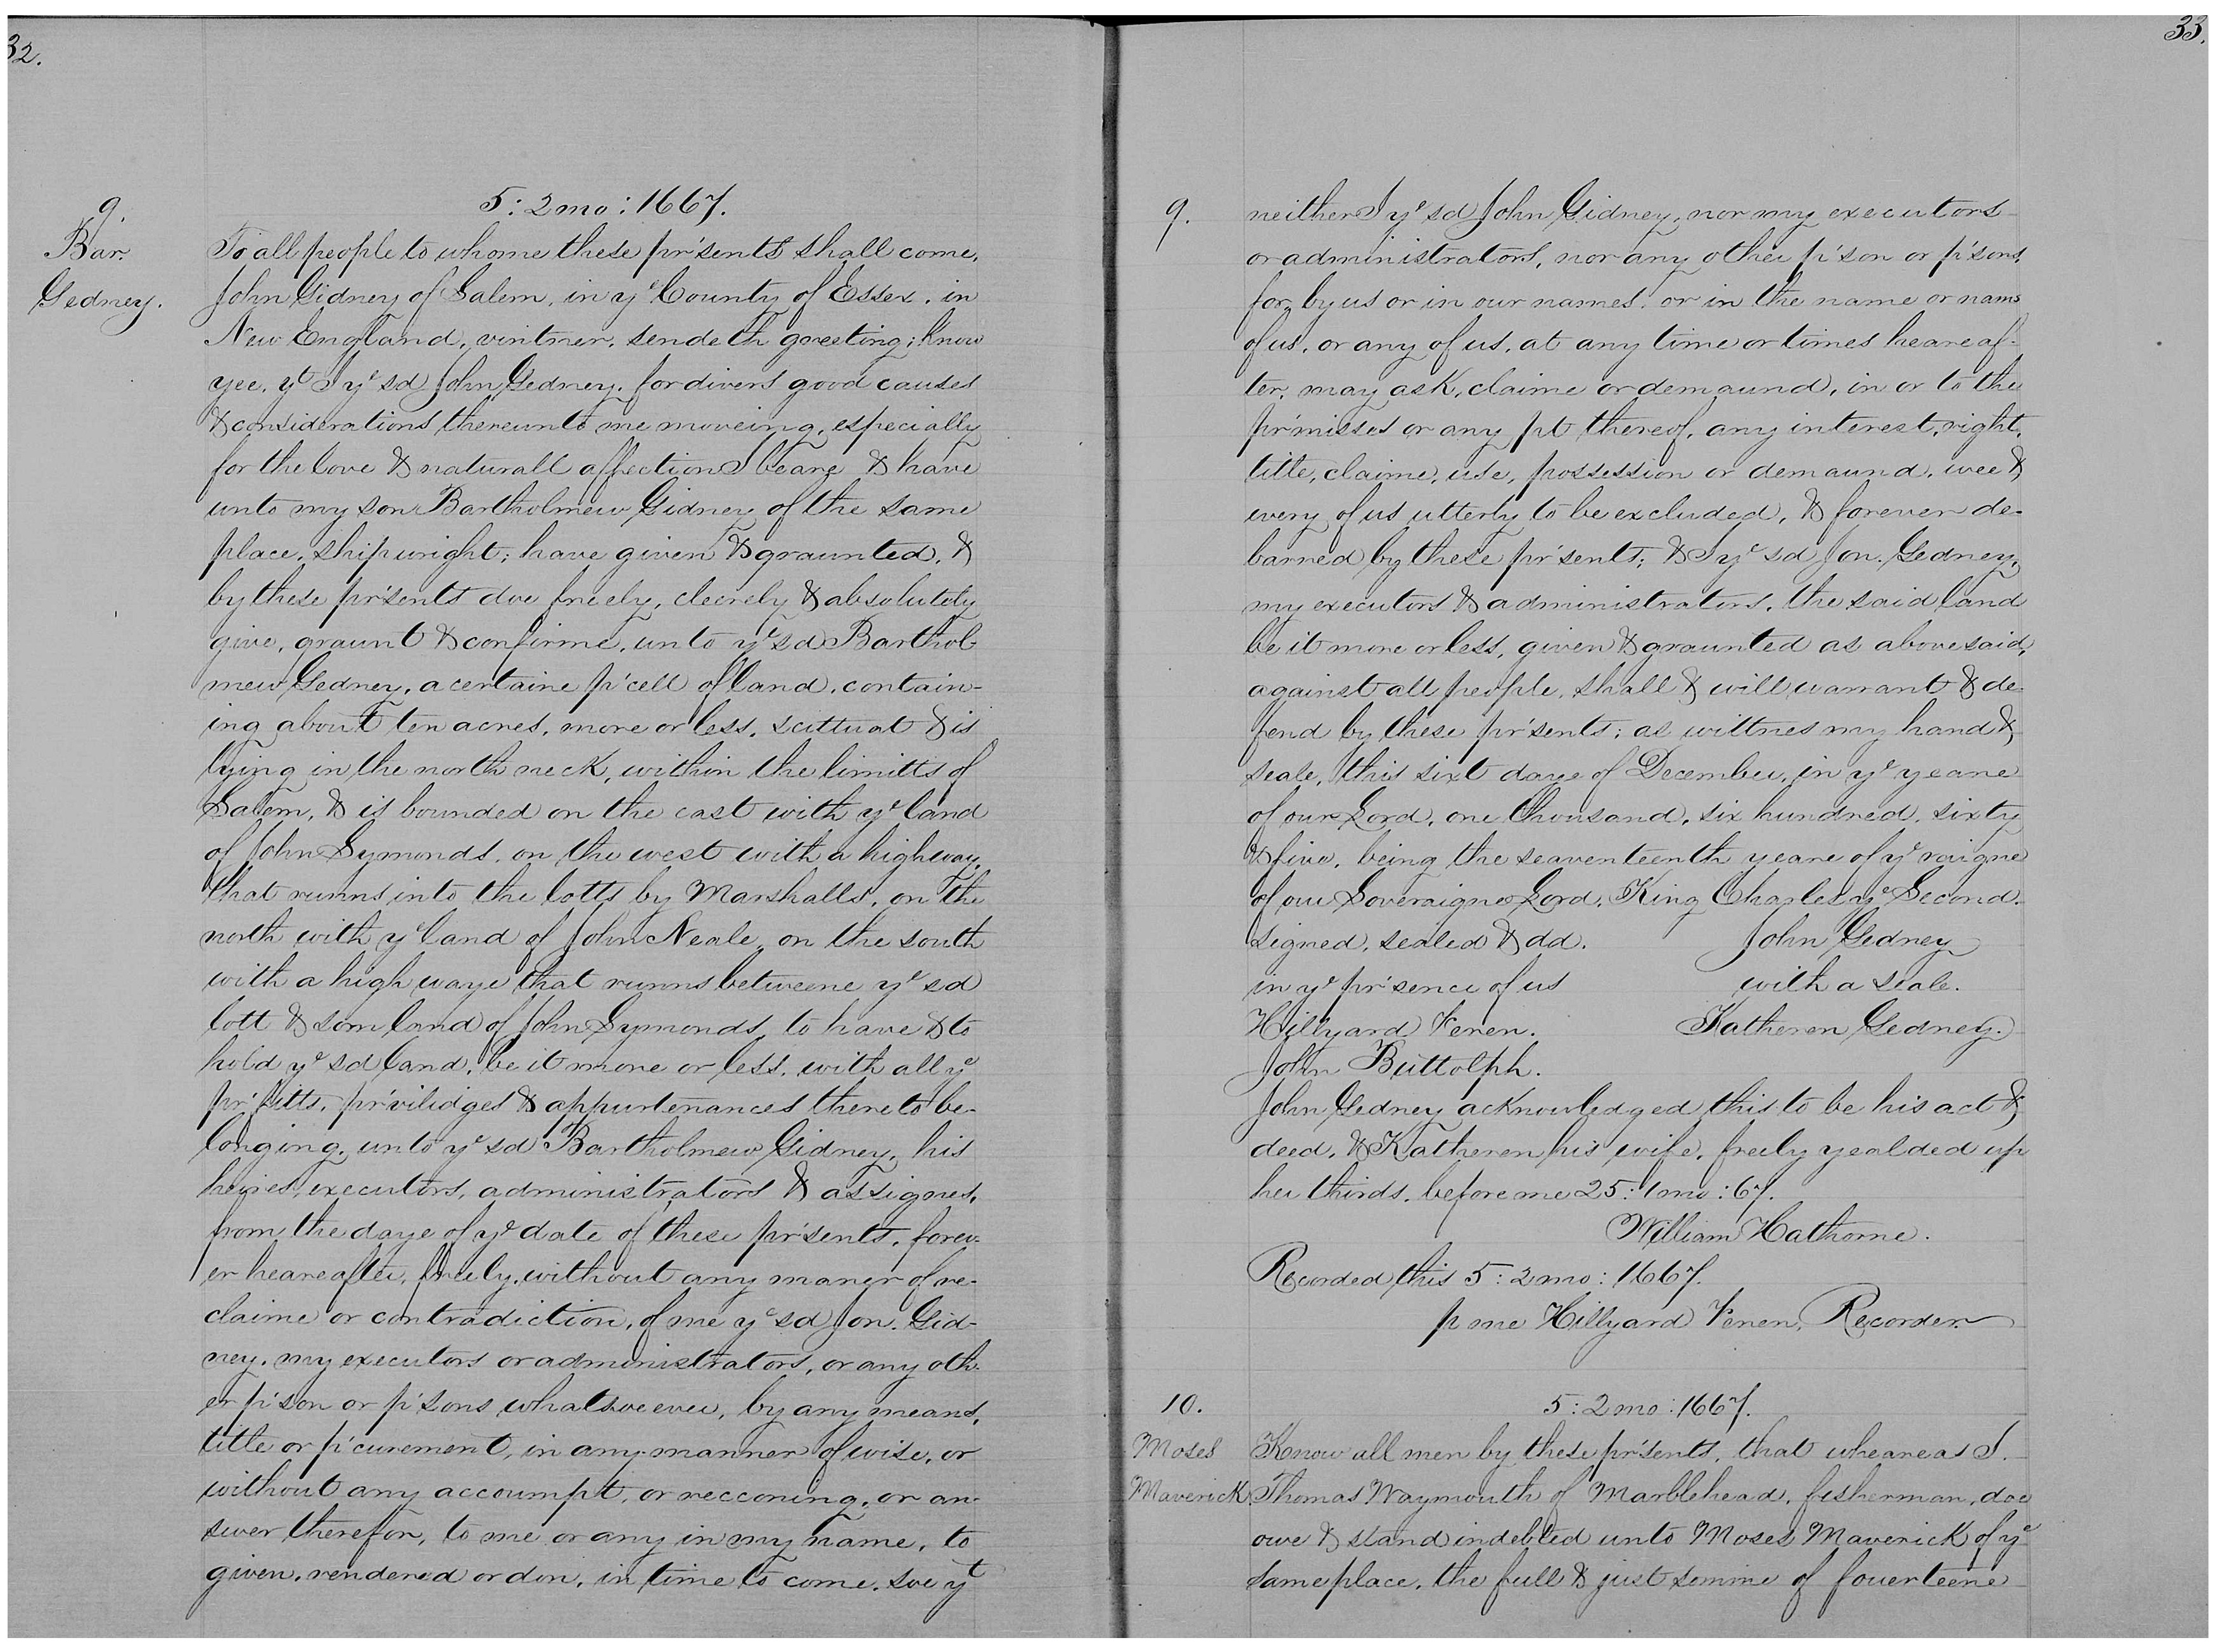 32.
5: 2mo: 1667.
9.
Bar.
Gedney.
To all people to whome these pr'sents shall come,
John Gidney of Salem, in yᵉ County of Essex, in
New England, vintner, sendeth greeting; know
yee, yᵗ I yᵉ sd John Gedney, for divers good causes
& considerations thereunto me moveing, especially
for the love & naturall affection I beare & have
unto my son Bartholmew Gidney of the same
place, shipwright; have given & graunted, &
by these pr'sents doe freely, cleerely & absolutely
give, graunt & confirme, unto yᵉ sd Barthol-
mew Gedney, a certaine p'cell of land, contain-
ing about ten acres, more or less, scittuat & is
lying in the north neck, within the limitts of
Salem, & is bounded on the east with yᵉ land
of John Symonds, on the west with a highway,
that runns into the lotts by Marshalls, on the
north with yᵉ land of John Neale, on the south
with a high waye that runns betweene yᵉ sd
lott & som land of John Symonds, to have & to
hold yᵉ sd land, be it more or less, with all yᵉ
pr'fitts, pr'vilidges & appurtenances thereto be-
longing, unto yᵉ sd Bartholmew Gidney, his
heires, executors, administrators & assignes,
from the daye of yᵉ date of these pr'sents, forev-
er heareafter, freely, without any maner of re-
claime or contradiction, of me yᵉ sd Jon. Gid-
ney, my executors or administrators, or any oth-
er p'son or p'sons whatsoeever, by any means,
title or p'curement, in any manner of wise, or
without any accoumpt, or recconing, or an-
swer therefor, to me or any in my name, to
given, rendered or don, in time to come, soe yᵗ
33.
9.
neither I yᵉ sd John Gidney, nor my executors
or administrators, nor any other p'son or p'sons,
for, by us or in our names, or in the name or nams
of us, or any of us, at any time or times heareaf-
ter, may ask, claime or demaund, in or to the
pr'misses or any pt thereof, any interest, right,
title, claime, use, possession or demaund, wee &
every of us utterly to be excluded, & forever de-
barred by these pr'sents; & I yᵉ sd Jon. Gedney,
my executors & administrators, the said land
be it more or less, given & graunted as abovesaid,
against all people, shall & will warrant & de-
fend by these pr'sents; as wittnes my hand &
seale, this sixt daye of December, in yᵉ yeare
of our Lord, one thousand, six hundred, sixty
& five, being the seaventeenth yeare of yᵉ raigne
of our Soveraigne Lord, King Charles yᵉ Second.
Signed, sealed & dd. John Gedney
in yᵉ pr'sence of us with a seale.
Hillyard Veren. Katheren Gedney.
John Buttolph.
John Gedney acknowledged this to be his act &
deed, & Katheren his wife, freely yealded up
her thirds, before me 25: 1mo: 67.
William Hathorne.
Recorded this 5: 2mo: 1667.
p me Hillyard Veren, Recorder
10.
5: 2mo: 1667.
Moses
Maverick
Know all men by these pr'sents, that wheareas I,
Thomas Waymouth of Marblehead, fisherman, doe
owe & stand indebted unto Moses Maverick of yᵉ
same place, the full & just somme of fouerteene